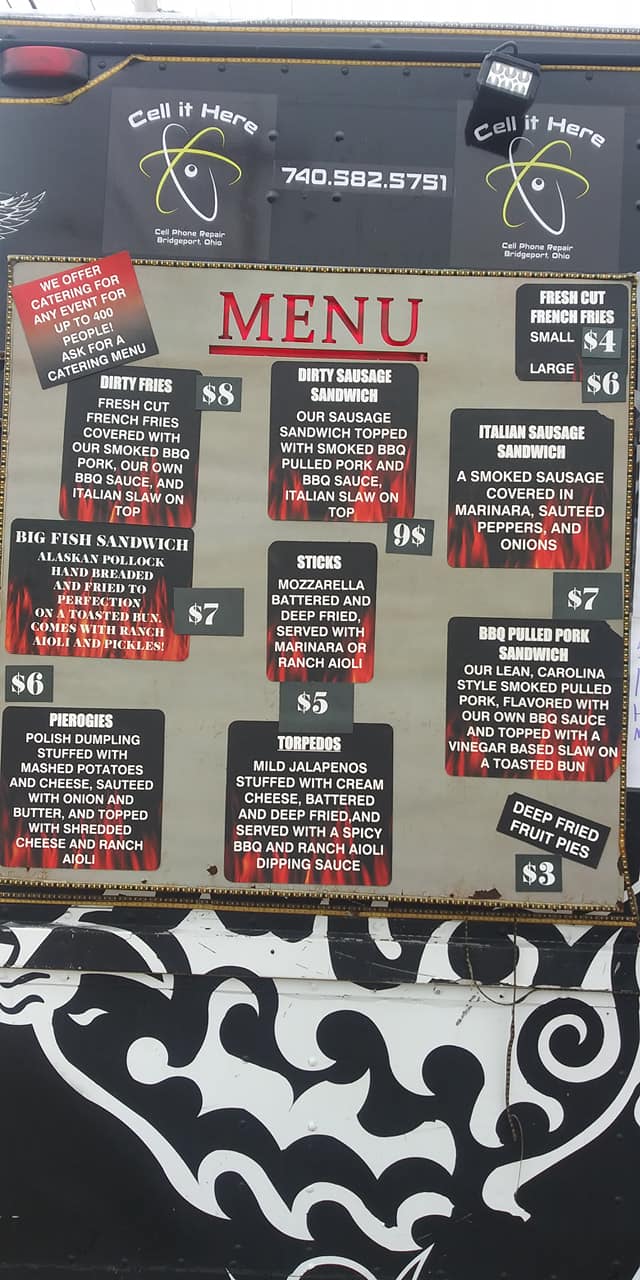 Cell it Here
Cell Phone Repair
Bridgeport, Ohio
740.582.5751
Cell it Here
Cell Phone Repair
Bridgeport, Ohio
WE OFFER
CATERING FOR
ANY EVENT FOR
UP TO 400
PEOPLE!
ASK FOR A
CATERING MENU
MENU
FRESH CUT
FRENCH FRIES
SMALL $4
LARGE $6
DIRTY FRIES
$8
FRESH CUT
FRENCH FRIES
COVERED WITH
OUR SMOKED BBQ
PORK, OUR OWN
BBQ SAUCE, AND
ITALIAN SLAW ON
TOP
DIRTY SAUSAGE
SANDWICH
OUR SAUSAGE
SANDWICH TOPPED
WITH SMOKED BBQ
PULLED PORK AND
BBQ SAUCE,
ITALIAN SLAW ON
TOP
9$
ITALIAN SAUSAGE
SANDWICH
A SMOKED SAUSAGE
COVERED IN
MARINARA, SAUTEED
PEPPERS, AND
ONIONS
$7
BIG FISH SANDWICH
ALASKAN POLLOCK
HAND BREADED
AND FRIED TO
PERFECTION
ON A TOASTED BUN.
COMES WITH RANCH
AIOLI AND PICKLES!
$7
STICKS
MOZZARELLA
BATTERED AND
DEEP FRIED,
SERVED WITH
MARINARA OR
RANCH AIOLI
$5
BBQ PULLED PORK
SANDWICH
OUR LEAN, CAROLINA
STYLE SMOKED PULLED
PORK, FLAVORED WITH
OUR OWN BBQ SAUCE
AND TOPPED WITH A
VINEGAR BASED SLAW ON
A TOASTED BUN
$6
PIEROGIES
POLISH DUMPLING
STUFFED WITH
MASHED POTATOES
AND CHEESE, SAUTEED
WITH ONION AND
BUTTER, AND TOPPED
WITH SHREDDED
CHEESE AND RANCH
AIOLI
TORPEDOS
MILD JALAPENOS
STUFFED WITH CREAM
CHEESE, BATTERED
AND DEEP FRIED,AND
SERVED WITH A SPICY
BBQ AND RANCH AIOLI
DIPPING SAUCE
DEEP FRIED
FRUIT PIES
$3